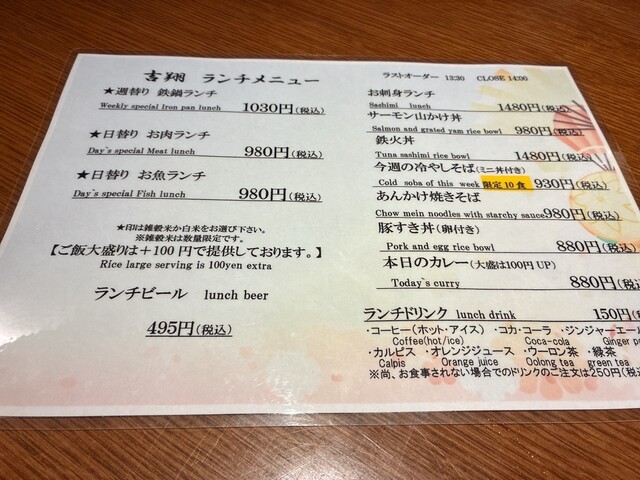 吉翔 ランチメニュー
★週替り 鉄鍋ランチ
Weekly special Iron pan lunch 1030円(税込)
★日替り お肉ランチ
Day's special Meat lunch 980円(税込)
★日替り お魚ランチ
Day's special Fish lunch 980円(税込)
★印は雑穀米か白米をお選び下さい。
※雑穀米は数量限定です。
【ご飯大盛りは+100円で提供しております。】
Rice large serving is 100yen extra
ランチビール lunch beer
495円(税込)
ラストオーダー 13:30 CLOSE 14:00
お刺身ランチ
Sashimi lunch 1480円(税込)
サーモン山かけ丼
Salmon and grated yam rice bowl 980円(税込)
鉄火丼
Tuna sashimi rice bowl 1480円(税込)
今週の冷やしそば(ミニ丼付き)
Cold soba of this week 限定10食 930円(税込)
あんかけ焼きそば
Chow mein noodles with starchy sauce 980円(税込)
豚すき丼(卵付き)
Pork and egg rice bowl 880円(税込)
本日のカレー(大盛は100円UP)
Today's curry 880円(税込)
ランチドリンク lunch drink 150円(税
・コーヒー(ホット・アイス) ・コカ・コーラ ・ジンジャーエール
Coffee(hot/ice) Coca-cola Ginger
・カルピス ・オレンジジュース ・ウーロン茶 ・緑茶
Calpis Orange juice Oolong tea green tea
※尚、お食事されない場合でのドリンクのご注文は250円(税